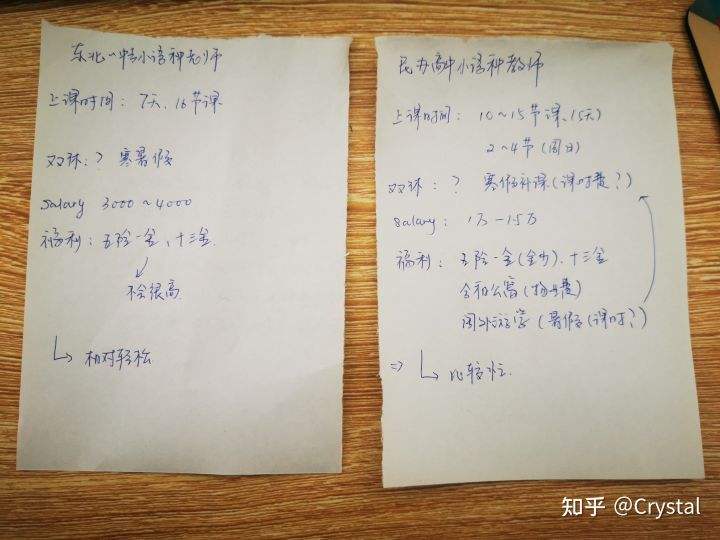 东北一中小语种老师
上课时间：7天、16节课
双休：？ 寒暑假
salary 3000～4000
福利：五险一金、十三金
不会很高
相对轻松
民办高中小语种教师
上课时间：10～15节课、(5天)
2～4节(周日)
双休：？ 寒假补课(课时费？)
salary：1万－15万
福利：五险一金(金少)、十三金
全和公寓(物业费)
国外游学(暑假(课时？)
⇒ 比较忙.
知乎 @Crystal